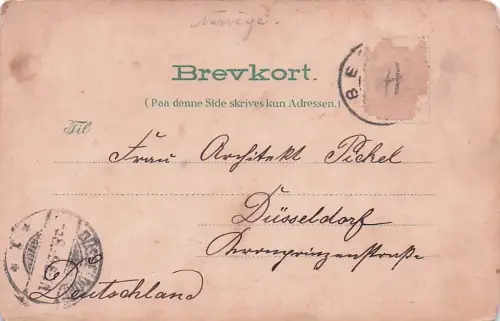 Norvège.
Brevkort.
(Paa denne Side skrives kun Adressen.)
BE
H
Til
Frau Architekt Pickel
Düsseldorf
Kronprinzenstraße
Deutschland